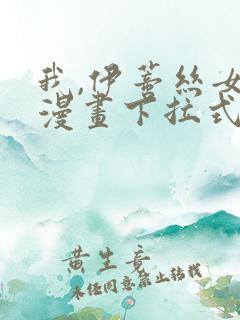 我,伊蕾丝女
漫畫下拉式
黄生竟
未经同意禁止转载